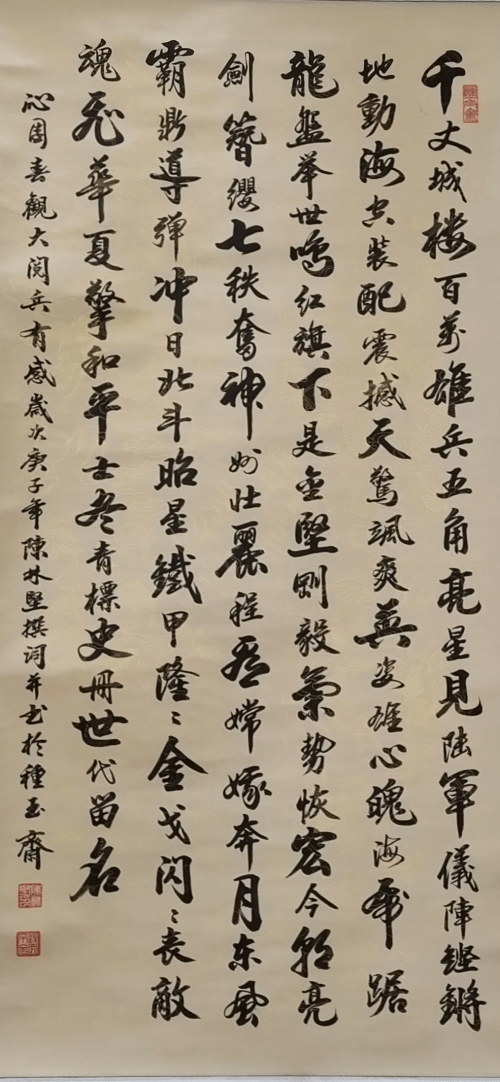 千丈城楼百萬雄兵五角亮星見陸軍儀陣鏗鏘
地動海空装配震撼天驚颯爽英姿雄心魄海虎踞
龍盤举世鳴红旗下是金堅剛毅氣勢恢宏今朝亮
劍簪纓七秩奮神州壯麗程看嫦娥奔月东風
霸鼎導弹冲日北斗昭星鐵甲隆〻金戈闪〻丧敵
魂飛華夏擎和平士冬青標史册世代留名
沁園春觀大閱兵有感歲次庚子年陳林堅撰词并书於種玉齋